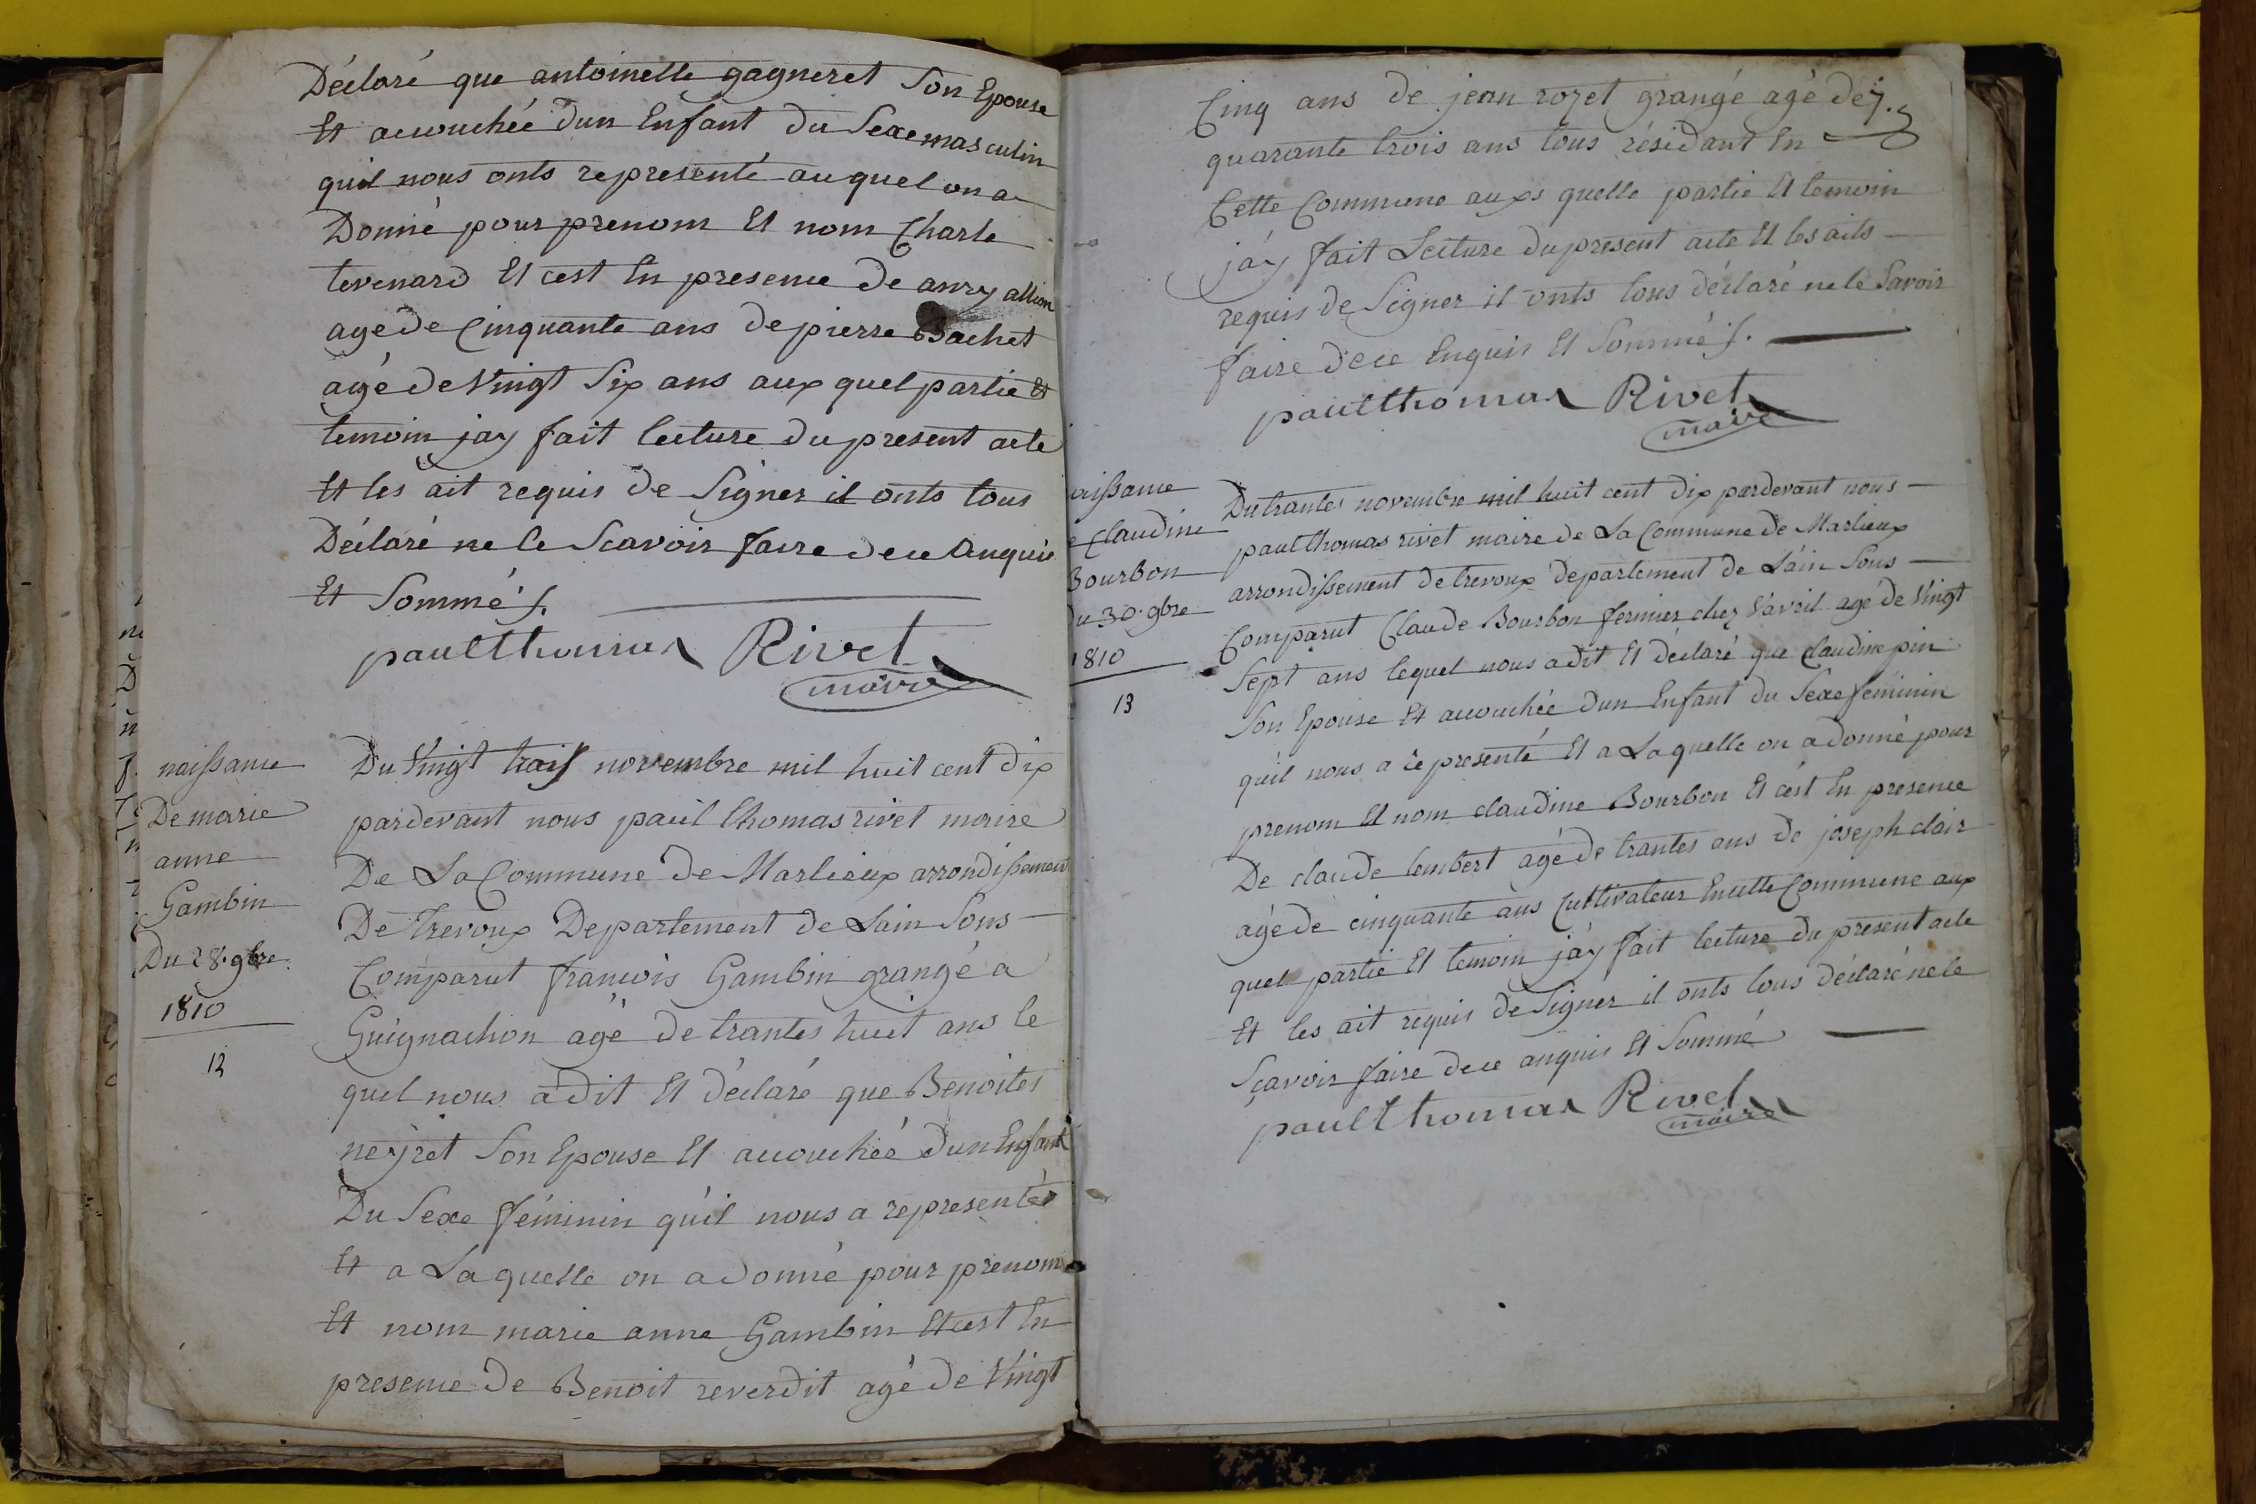 Déclaré que antoinette gagneret Son Epouse
Et acouchée dun Enfant du Sexe masculin
quil nous onts representé auquel on a
Donné pour prenom Et nom Charle
tevenard Et cest En presence de anry allion
agé de Cinquante ans de pierre Bachet
agé de Vingt Six ans aux quel partie Et
temoin jay fait lecture du present acte
Et les ait requis de Signer il onts tous
Déclaré ne le Scavoir faire de ce Anquis
Et Sommé ʃ.
paul thomas Rivet
maire
naissance
De marie
anne
Gambin
Du 28. 9bre
1810
12
Du Vingt novembre mil huit cent dix
pardevant nous paul thomas rivet maire
De La Commune de Marlieux arrondissement
De trevoux Departement de Lain Sons
Comparut francois Gambin grangé a
Guignachon agé de trantes huit ans le
quel nous a dit Et déclaré que Benoites
neyret Son Epouse Et acouchée dun Enfant
Du Sexe féminin qu'il nous a representés
Et a Laquelle on a donné pour prenom
Et nom marie anne Gambin Et cest En
presence de Benoit reverdit agé de Vingt
Cinq ans de jean rozet grangé agé de
quarante trois ans tous résidant En
Cette Commune auxs quelle partie Et temoin
jáy fait Lecture du present acte Et les aits
requis de Signer il onts tous déclaré ne le Savoir
faire de ce Enquis Et Sommé ʃ.
paul thomas Rivet
maire
aissance
e Claudine
Bourbon
du 30. 9bre
1810
13
Du trantes novembre mil huit cent dix pardevant nous
paul thomas rivet maire de La Commune de Marlieux
arrondissement de trevoux departement de L'áin Sons
Comparut Claude Bourbon fermier chez Vavril agé de Vingt
Sept ans lequel nous a dit Et déclaré que Claudine pin
Son Epouse Et acouchée dun Enfant du Sexe feminin
qu'il nous a représenté Et a Laquelle on a donné pour
prenom Et nom claudine Bourbon Et c'est En presence
De claude lembert agé de trantes ans de joseph clair
agé de cinquante ans Cultivateur En cette Commune aux
quel partie Et temoin j'ay fait lecture du present acte
Et les ait requis de Signer il onts tous déclaré ne le
Scavoir faire de ce anquis Et Sommé
paul thomas Rivet
maire